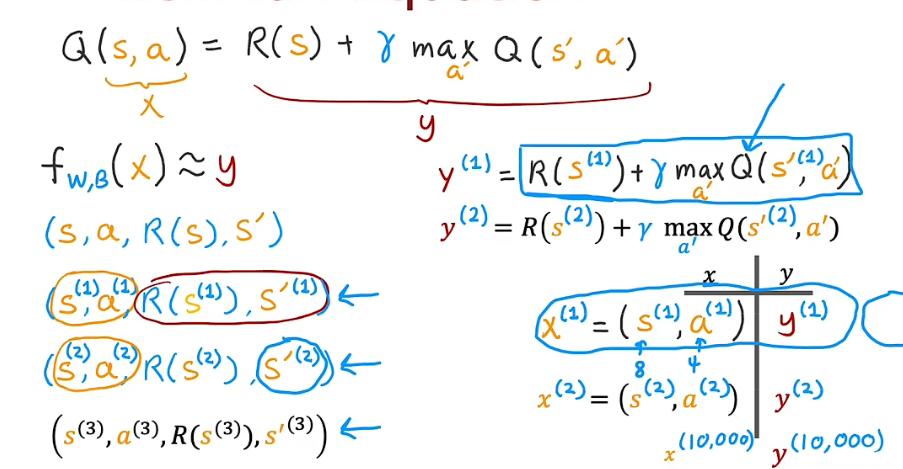 Q(s,a) = R(s) + γ max_{a'} Q(s',a')
x
y
f_{W,B}(x) ≈ y
(s, a, R(s), s')
(s^{(1)}, a^{(1)}, R(s^{(1)}), s'^{(1)}) ←
(s^{(2)}, a^{(2)}, R(s^{(2)}), s'^{(2)}) ←
(s^{(3)}, a^{(3)}, R(s^{(3)}), s'^{(3)}) ←
y^{(1)} = R(s^{(1)}) + γ max_{a'} Q(s'^{(1)}, a')
y^{(2)} = R(s^{(2)}) + γ max_{a'} Q(s'^{(2)}, a')
x y
x^{(1)} = (s^{(1)}, a^{(1)}) y^{(1)}
8 4
x^{(2)} = (s^{(2)}, a^{(2)}) y^{(2)}
x^{(10,000)} y^{(10,000)}